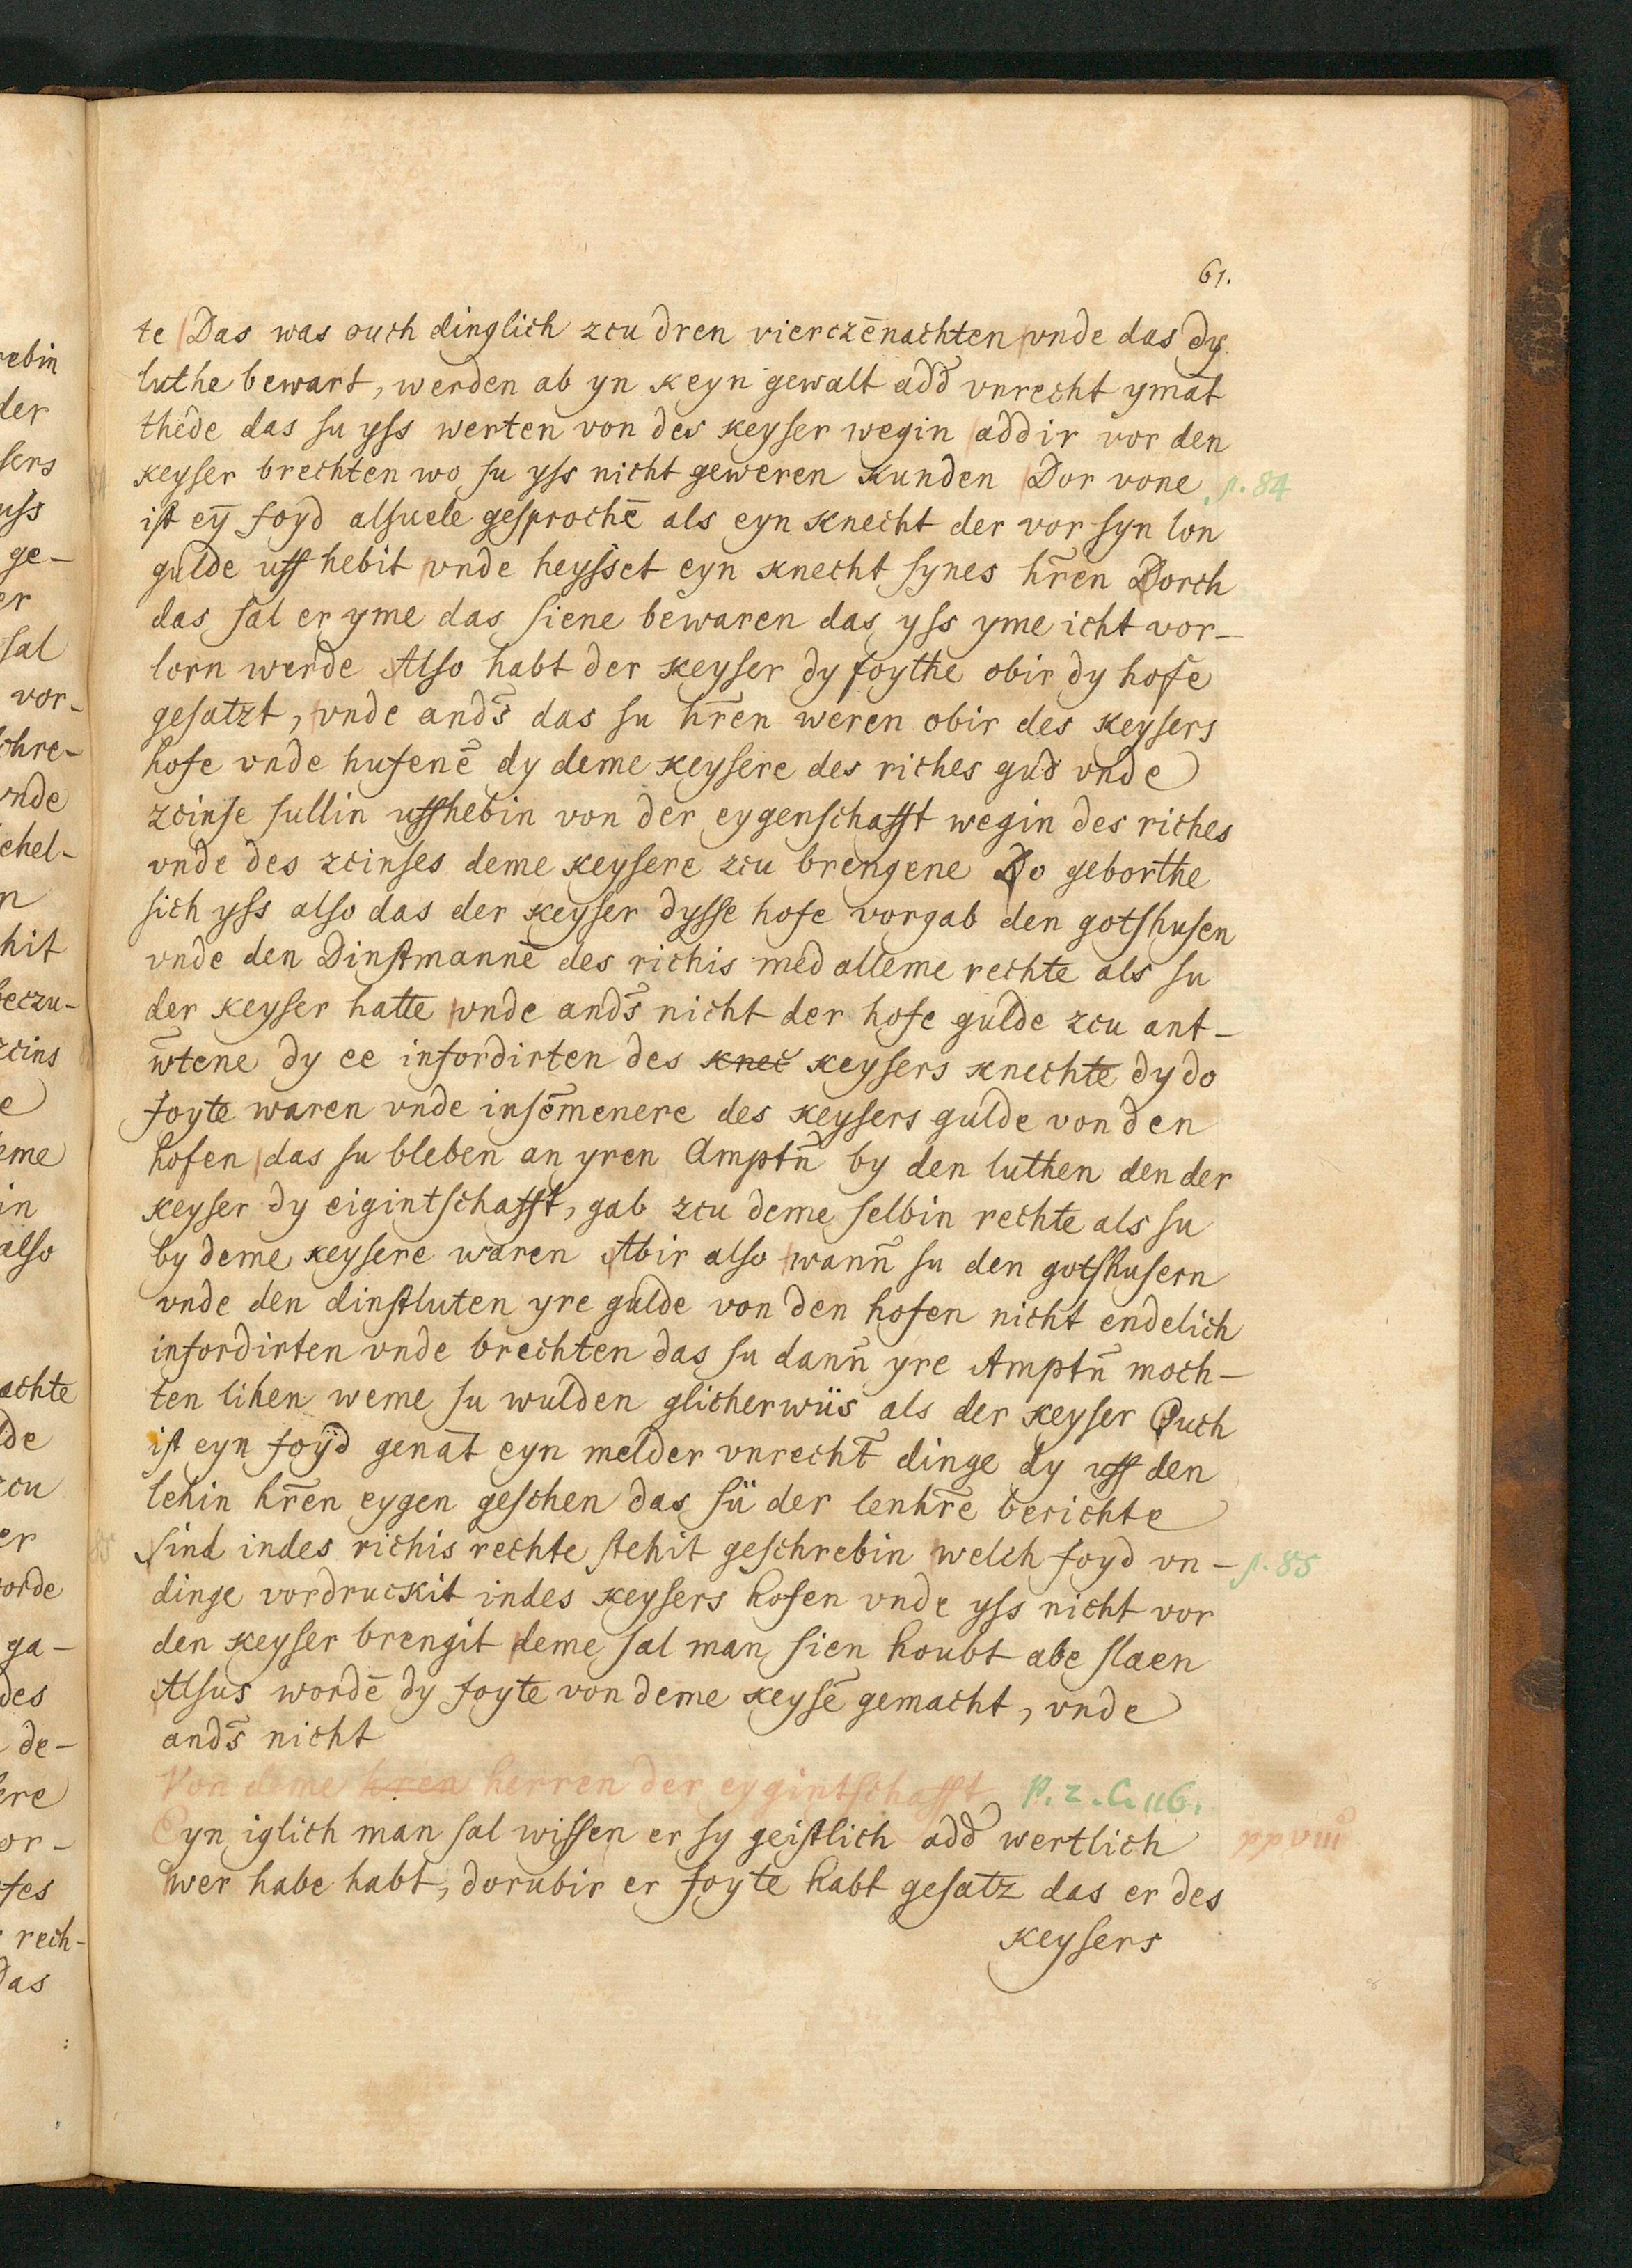 61.
te Das was ouch dinglich zcu dren vierczēnachten vnde das dy
luthe bewart, werden ab yn keyn gewalt add̄ vnrecht ymāt
thēde das su yss werten von des keyser wegin addir vor den
keyser brechten wo su yss nicht geweren kunden Dor vone p. 84
ist eȳ foyd alsuele gesprochē als eyn knecht der vor syn lon
gulde uff hebit vnde heysset eyn knecht synes hr̄en Dorch
das sal er yme das siene bewaren das yss yme icht vor-
lorn werde Also habt der keyser dy foythe obir dy hofe
gesatzt, vnde and̄s das su hr̄en weren obir des keysers
hofe vnde hufenē dy deme keysere des riches gud vnde
zcinse sullin uffhebin von der eygenschafft wegin des riches
vnde des zcinses deme keysere zcu brengene Do geborthe
sich yss also das der keyser dysse hofe vorgab den gotshusen
vnde den Dinstmannē des richis med alleme rechte als su
der keyser hatte vnde and̄s nicht der hofe gulde zcu ant-
w̄tene dy ee infordirten des knec̄ keysers knechte dy do
foyte waren vnde insēmenere des keysers gulde von den
hofen das su bleben an yren Amptn̄ by den luthen den der
keyser dy eigintschafft, gab zcu deme selbin rechte als su
by deme keysere waren Abir also wann̄ su den gotshusern
vnde den dinstluten yre gulde von den hofen nicht endelich
infordirten vnde brechten das su dann̄ yre Amptn̄ moch-
ten lihen weme su wulden glicherwüs als der keyser Ouch
ist eyn foÿd genāt eyn melder vnrecht̄ dinge dy uff den
lehin hr̄en eygen geschen das sü der lenhr̄e berichte
sind indes richis rechte stehit geschrebin welch foyd vn- p. 85
dinge vordruckit indes keysers hofen vnde yss nicht vor
den keyser brengit deme sal man sien houbt abe slaen
Alsus wordē dy foyte von deme keysē gemacht, vnde
and̄s nicht
Von deme hren herren der eygintschafft P. 2. C. 116.
Eyn iglich man sal wissen er sy geistlich add̄ wertlich
wer habe habt, dorubir er foyte habt gesatz das er des
keysers